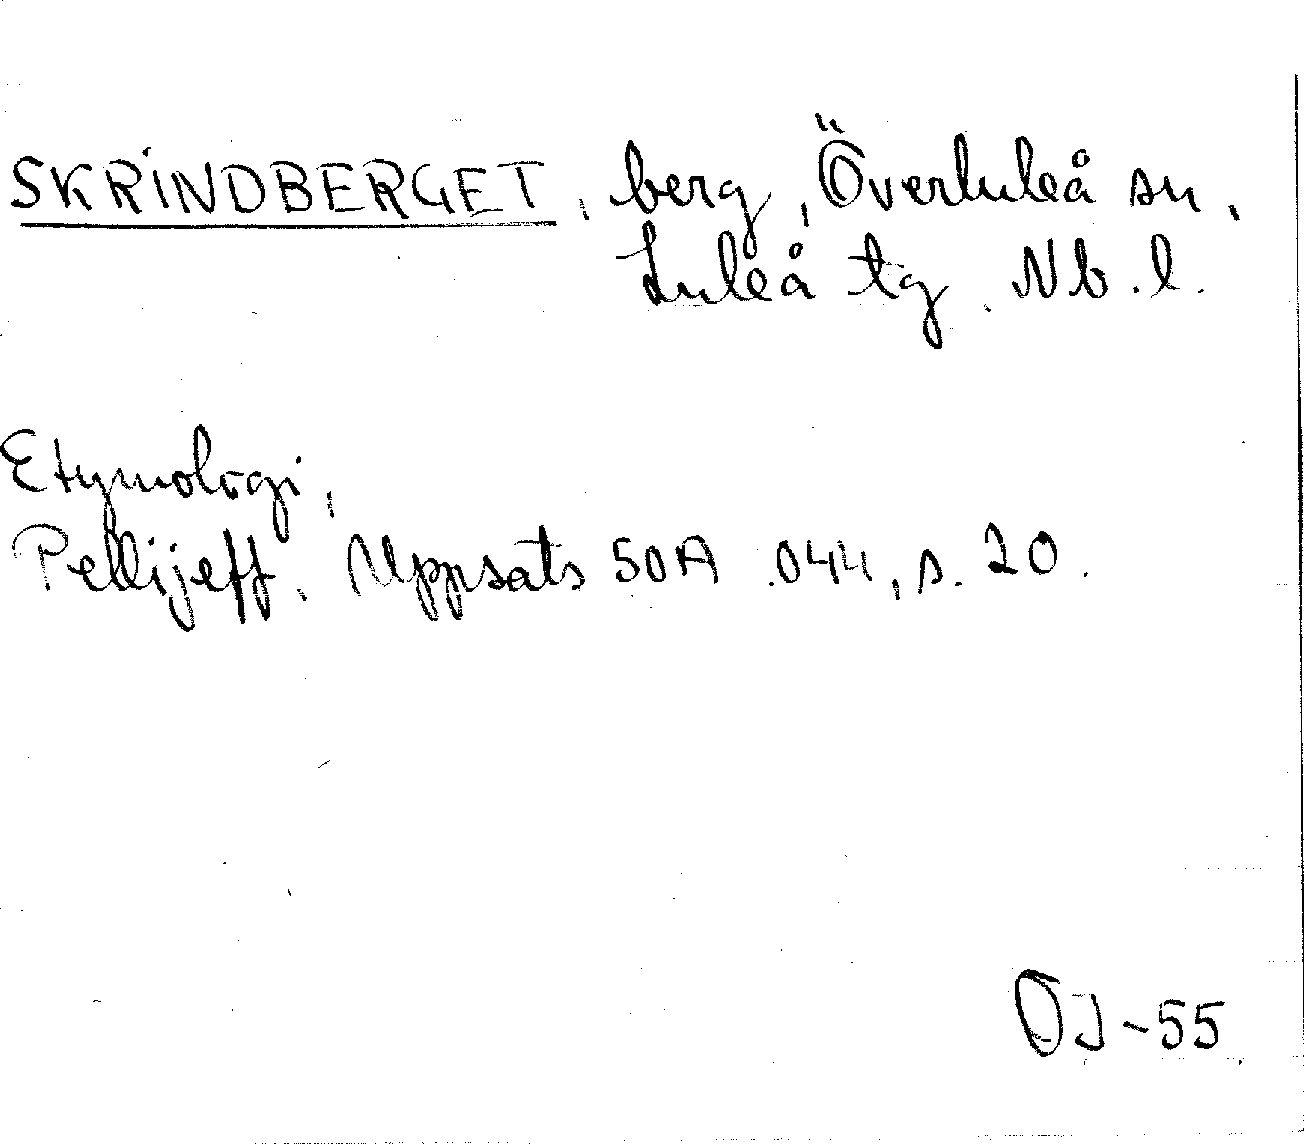 SKRINDBERGET, berg, Överluleå sn,
Luleå tg, Nb. l.
Etymologi,
Pellijeff, Uppsats 50A 044, s. 20.
OJ-55